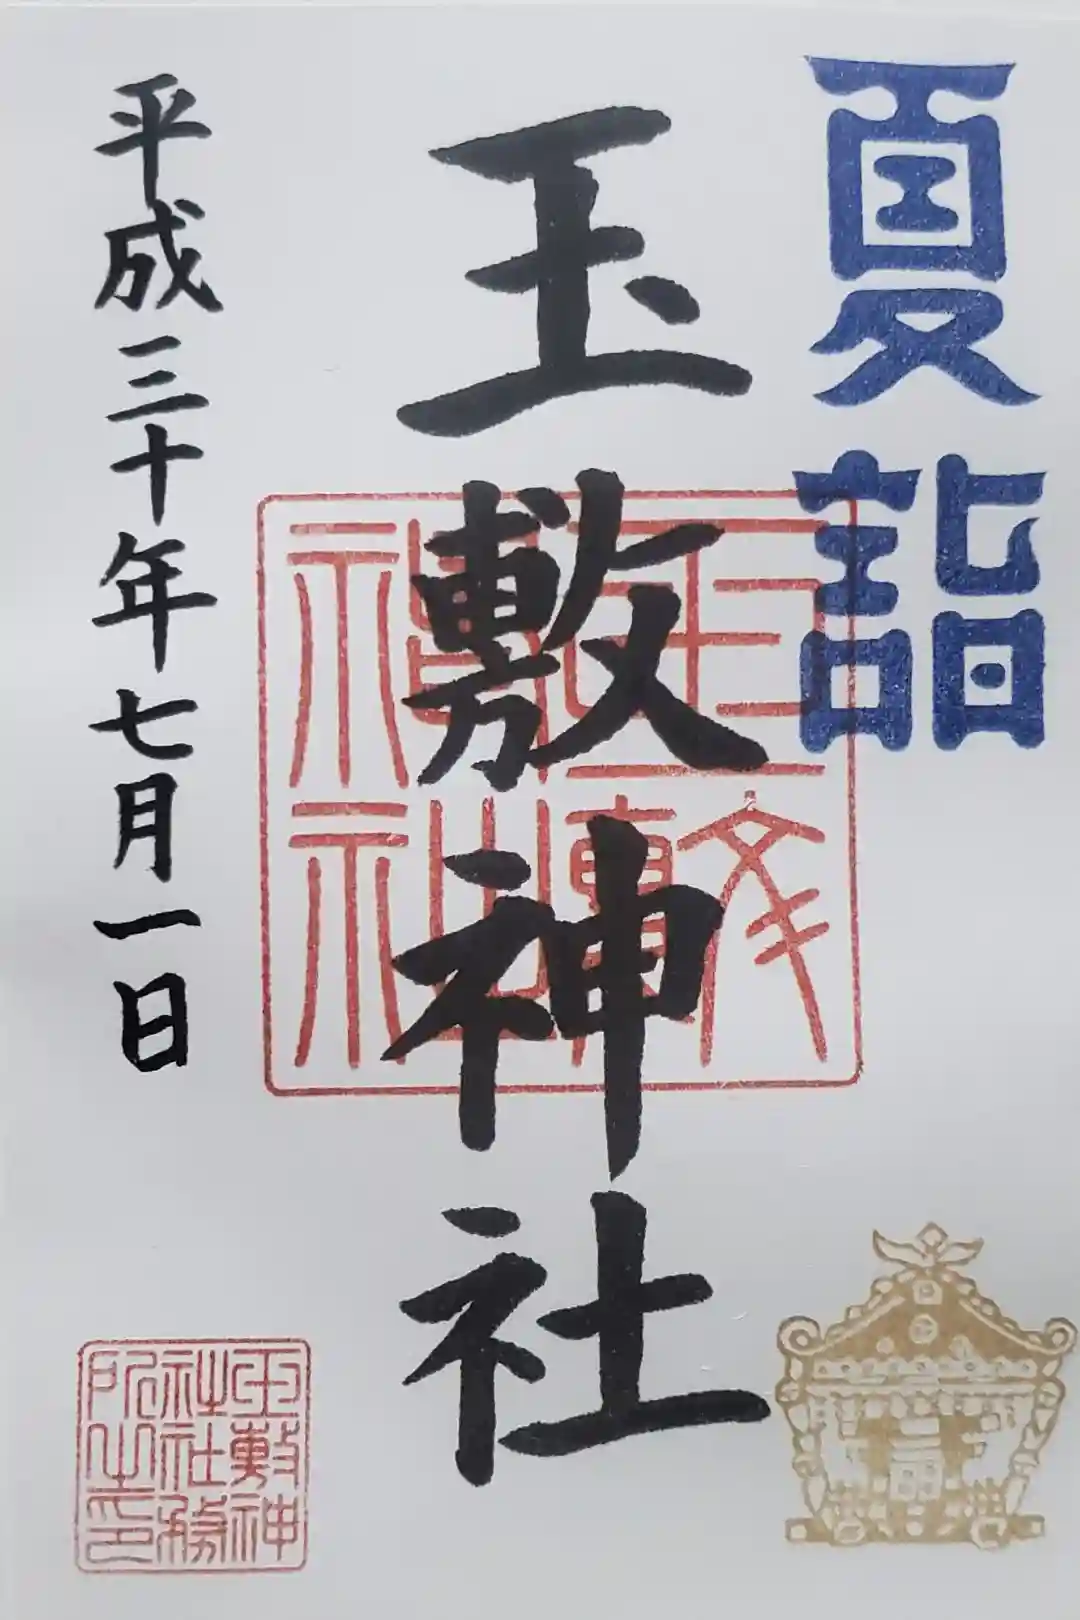 夏詣
玉敷神社
玉敷神社
平成三十年七月一日
玉敷神社社務所之印